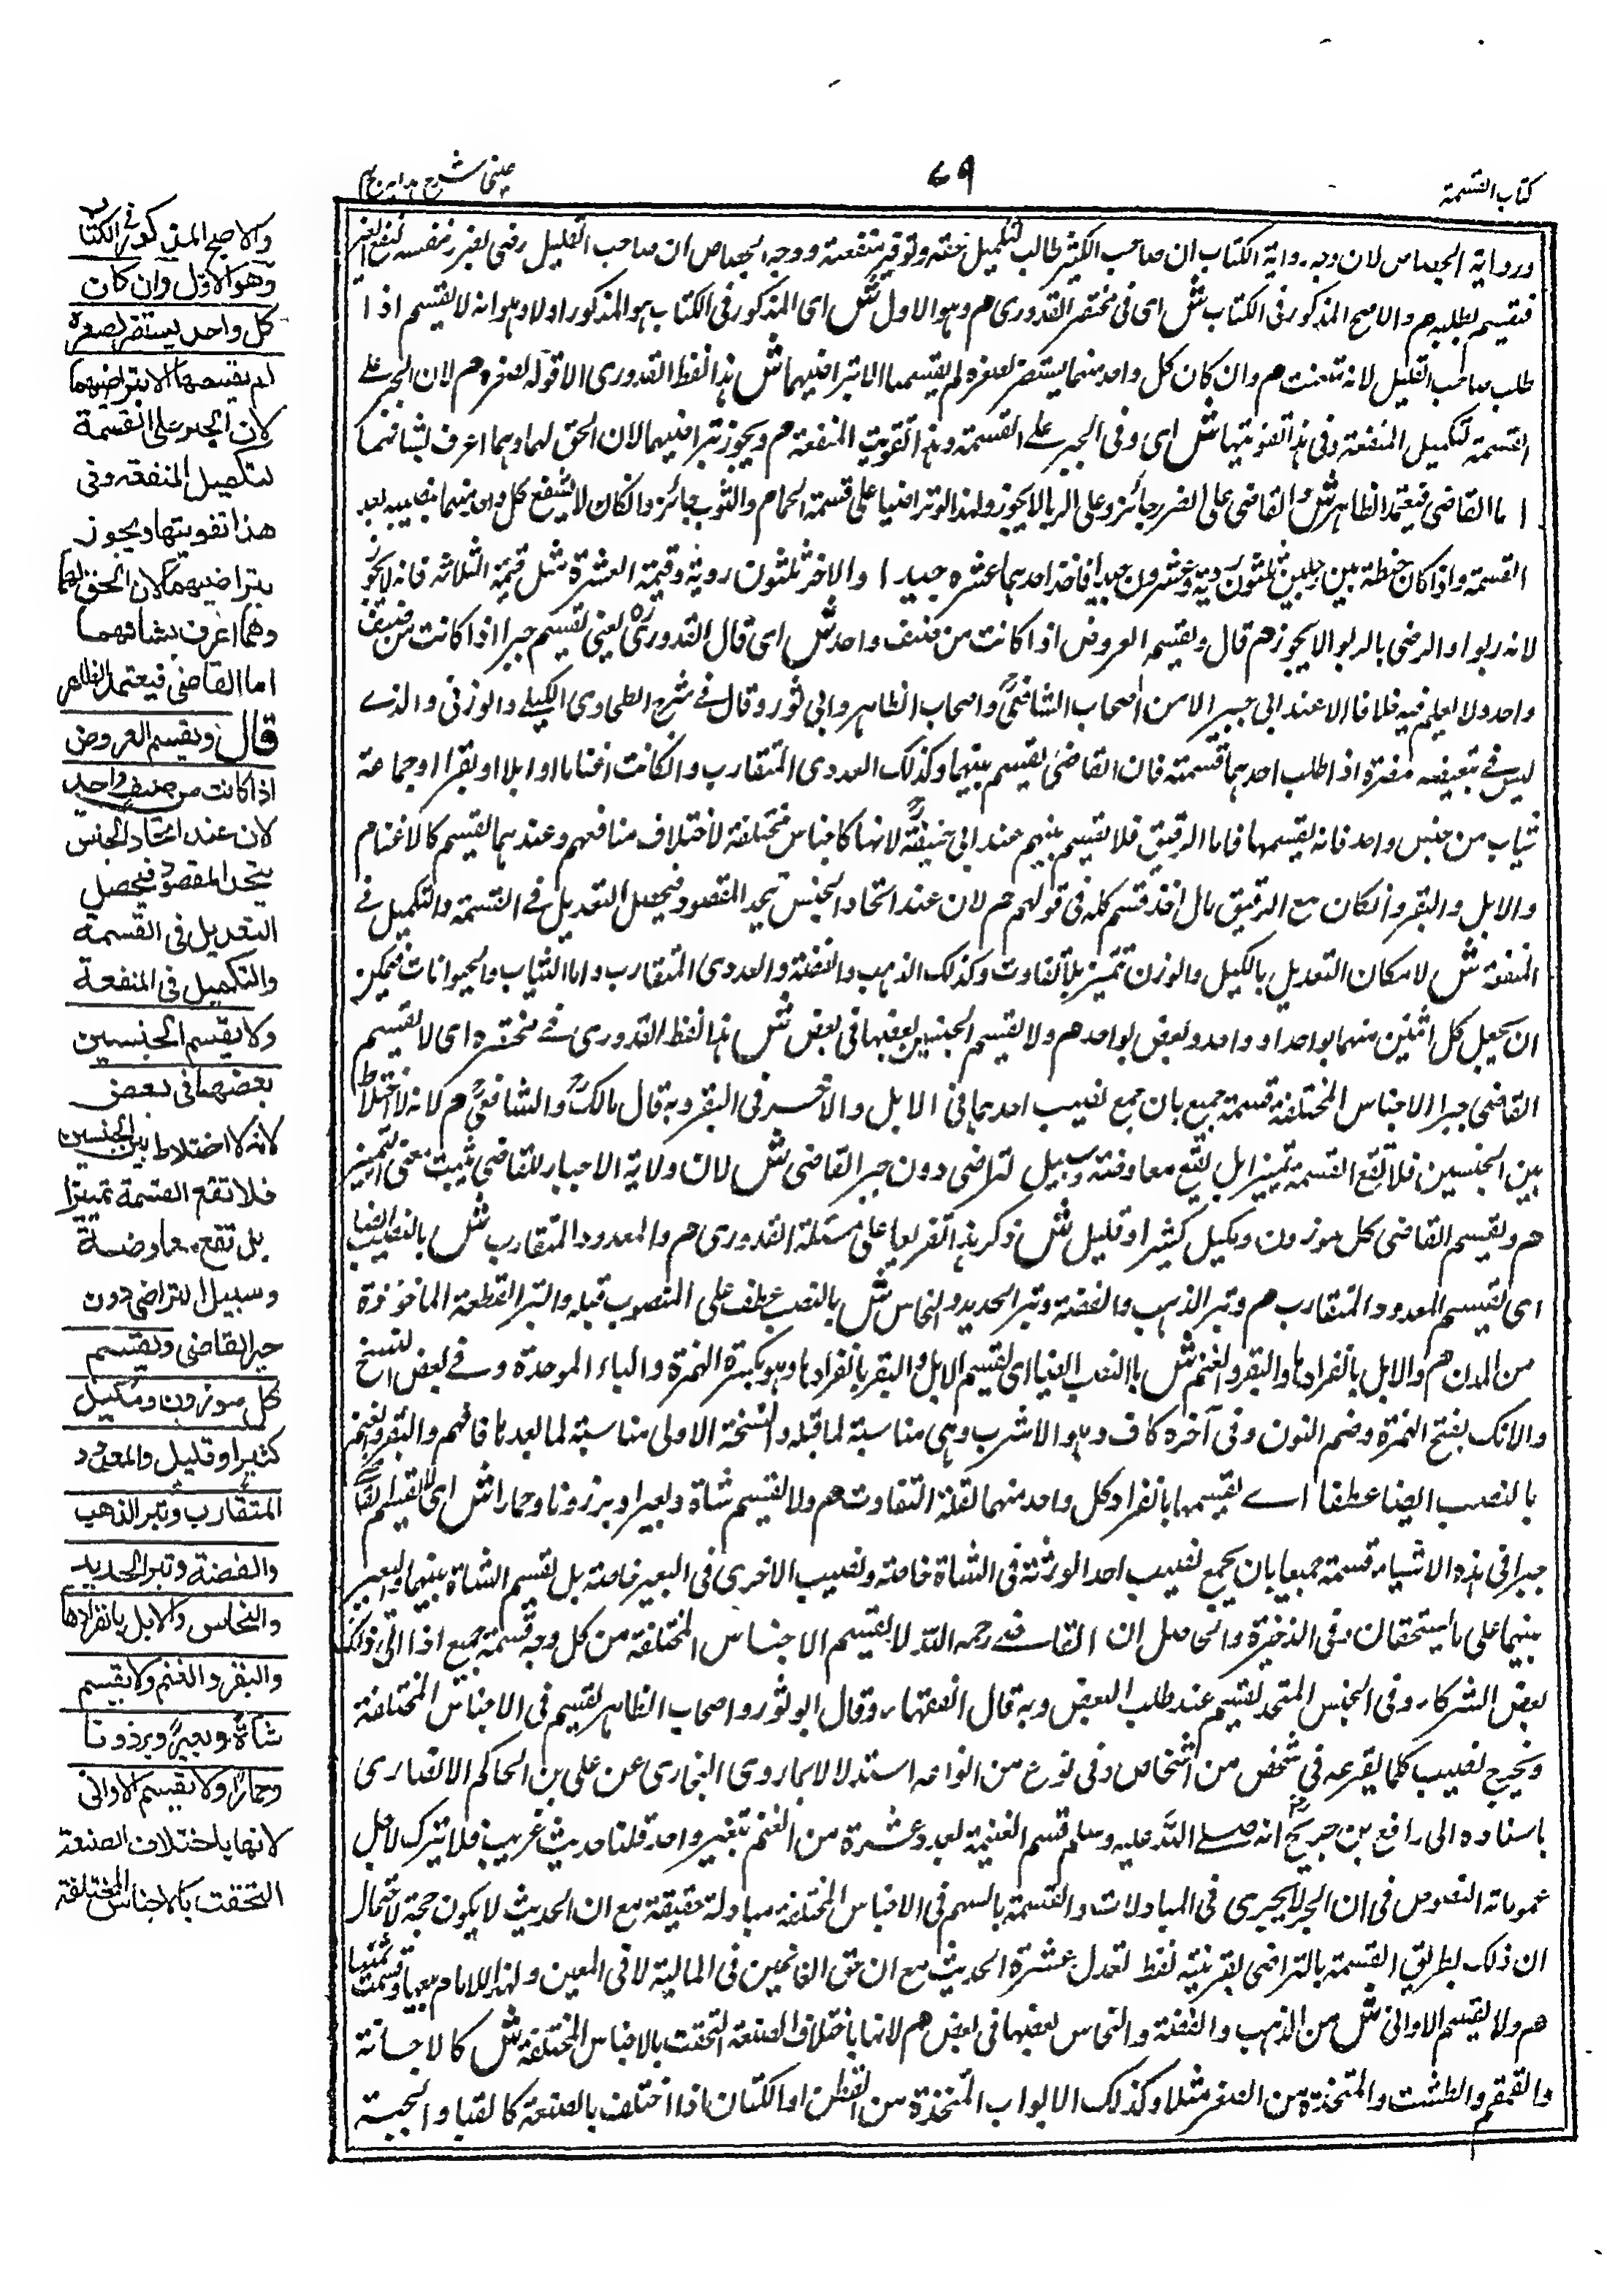 كتاب القسمة
٦٩
عینی شرح هدایه ج ۴
ورواية الجصاص لان وجه رواية الكتاب ان صاحب الكثير طالب لتكميل حقه وتوفير منفعته ووجه الجصاص ان صاحب القليل رضى بضرر نفسه
فتقسم بطلبه هم والاصح المذكور فى الكتاب ش اى فى مختصر القدورى هم وهو الاول ش اى المذكور فى الكتاب هو المذكور اولا وهو انه لا يقسم اذا
طلب صاحب القليل لانه متعنت هم وان كان كل واحد منهما يستضر لصغره لم يقسمها الا بتراضيهما ش هذا لفظ القدورى الا قوله لصغره هم لان الجبر على
القسمة لتكميل المنفعة وفى هذا تفويتها ش اى وفى الجبر على القسمة وهذا تفويت المنفعة هم ويجوز بتراضيهما لان الحق لهما وهما اعرف بشانهما
اما القاضى فيعتمد الظاهر ش والقاضى على الضرر جائز وعلى الربا لا يجوز ولهذا لو تراضيا على قسمة الحمام والثوب جائز وان كان لا ينتفع كل واحد منهما بنصيبه بعد
القسمة واذا كان حنطة بين رجلين ثلثون ردية وعشرون جيدا فاخذ احدهما عشره جيدا والاخر ثلثون ردية وقيمة العشرة مثل قيمة الثلاثة فانه لا يجوز
لانه ربوا والرضى بالربو الا يجوز هم قال ويقسم العروض اذا كانت من صنف واحد ش اى قال القدورى يعنى تقسيم جبرا اذا كانت من صنف
واحد ولا يعلم فيه خلافا الا عند ابى جبير الا من اصحاب الشافعى واصحاب الظاهر وابى ثور وقال فى شرح الطحاوى الكيلى والوزنى والذى
ليس فى تبعيضه مضرة اذا طلب احدهما قسمته فان القاضى يقسم بينهما وكذلك العددى المتقارب وان كانت اغناما او ابلا او بقرا او جماعة
ثياب من جنس واحد فانه يقسمها فاما الرقيق فلا يقسم بينهم عند ابى حنيفة لانها كاجناس مختلفة لاختلاف منافعهم وعندهما يقسم كالاغنام
والابل والبقر وان كان مع الرقيق مال اخذ قسم كله فى قولهم هم لان عند اتحاد الجنس يتحد المقصود فيحصل التعديل فى القسمة والتكميل فى
المنفعة ش لامكان التعديل بالكيل والوزن تميز بلا تفاوت وكذلك الذهب والفضة والعددى المتقارب واما الثياب والحيوانات فيمكن
ان يجعل كل اثنين منهما بواحد او واحد وبعض بواحد هم ولا يقسم الجنسين بعضها فى بعض ش هذا لفظ القدورى فى مختصره اى لا يقسم
القاضى جبرا الاجناس المختلفة قسمة جميع بان جمع نصيب احدهما فى الابل والاخر فى البقر وبه قال مالك والشافعى هم لانه لا اختلاط
بين الجنسين فلا تقع القسمة تميزا بل تقع معاوضة وسبيل لتراضى دون جبر القاضى ش لان ولاية الاجبار للقاضى يثبت بمعنى التميز
هم ويقسم القاضى كل موزون ومكيل كثيرا وقليل ش ذكر هذا تفريعا على مسئلة القدورى هم والمعدود المتقارب ش بالنصب ايضا
اى يقسم المعدود المتقارب هم وتبر الذهب والفضة وتبر الحديد والنحاس ش بالنصب عطف على المنصوب قبله والتبر القطعة الماخوذة
من المدن هم والابل بانفرادها والبقر والغنم ش بالنصب ايضا اى يقسم الابل والبقر بانفرادها وهو بكسرة الهمزة والباء الموحدة وفى بعض النسخ
والانك بفتح الهمزة وضم النون وفى آخره كاف وهو الاشرب وهى مناسبة لما قبله والنسخة الاولى مناسبة لما بعدها فافهم والبقر والغنم
بالنصب ايضا عطفا اى يقسمها بانفراد كل واحد منهما لقلة التفاوت هم ولا يقسم شاة وبعيرا وبرذونا وحمارا ش اى لا يقسم القاضى
جبرا فى هذه الاشياء قسمة جميعا بان يجمع نصيب احد الورثة فى الشاة خاصة ونصيب الاخرى فى البعير خاصة بل يقسم الشاة بينهما والبعير
بينهما على ما يستحقان وفى الذخيرة والحاصل ان القاضى رحمه الله لا يقسم الاجناس المختلفة من كل وجه قسمة جميع اذا ابى ذلك
بعض الشركاء وفى الجنس المتحد يقسم عند طلب البعض وبه قال الفقهاء وقال ابو ثور واصحاب الظاهر يقسم فى الاجناس المختلفة
ويخرج نصيب كلما يقرعه فى شخص من اشخاص وفى نوع من انواعه استدلالا بما روى البخارى عن على بن الحاكم الانصارى
باسناده الى رافع بن جريج انه صلى الله عليه وسلم قسم الغنيمة بعد وعشرة من الغنم ببعير واحد قلنا حديث غريب فلا تترك لاجل
عموماته النصوص فى ان الجبر لا يجرى فى المبادلات والقسمة بالسهم فى الاجناس المختلفة مبادلة حقيقة مع ان الحديث لا يكون حجة لاحتمال
ان ذلك بطريق القسمة بالتراضى بقرينة لفظ لعدل عشرة الحديث مع ان حق الغانمين فى المالية لا فى المعين ولهذا للامام بيعها وقسمت ثمنها
هم ولا يقسم الاوانى ش من الذهب والفضة والنحاس بعضها فى بعض هم لانها باختلاف الصنعة التحقت بالاجناس المختلفة ش كالاجانة
والقمقم والطشت والمتخذة من الصفر مثلا وكذلك الابواب المتخذة من القطن او الكتان اذا اختلف بالصنعة كالقبا والجبة
والاصح المذكور فى الكتاب
وهو الاول وان كان
كل واحد يستضر لصغره
لم يقسمها الا بتراضيهما
لان الجبر على القسمة
لتكميل المنفعة وفى
هذا تفويتها ويجوز
بتراضيهما لان الحق لهما
وهما اعرف بشانهما
اما القاضى فيعتمد الظاهر
قال ويقسم العروض
اذا كانت من صنف واحد
لان عند اتحاد الجنس
يتحد المقصود فيحصل
التعديل فى القسمة
والتكميل فى المنفعة
ولا يقسم الجنسين
بعضهما فى بعض
لانه لا اختلاط بين الجنسين
فلا تقع القسمة تمييزا
بل تقع معاوضة
وسبيل التراضى دون
جبر القاضى ويقسم
كل موزون ومكيل
كثيرا وقليل والمعدود
المتقارب وتبر الذهب
والفضة وتبر الحديد
والنحاس والابل بانفرادها
والبقر والغنم ولا يقسم
شاة وبعيرا وبرذونا
وحمارا ولا يقسم الاوانى
لانها باختلاف الصنعة
التحقت بالاجناس المختلفة